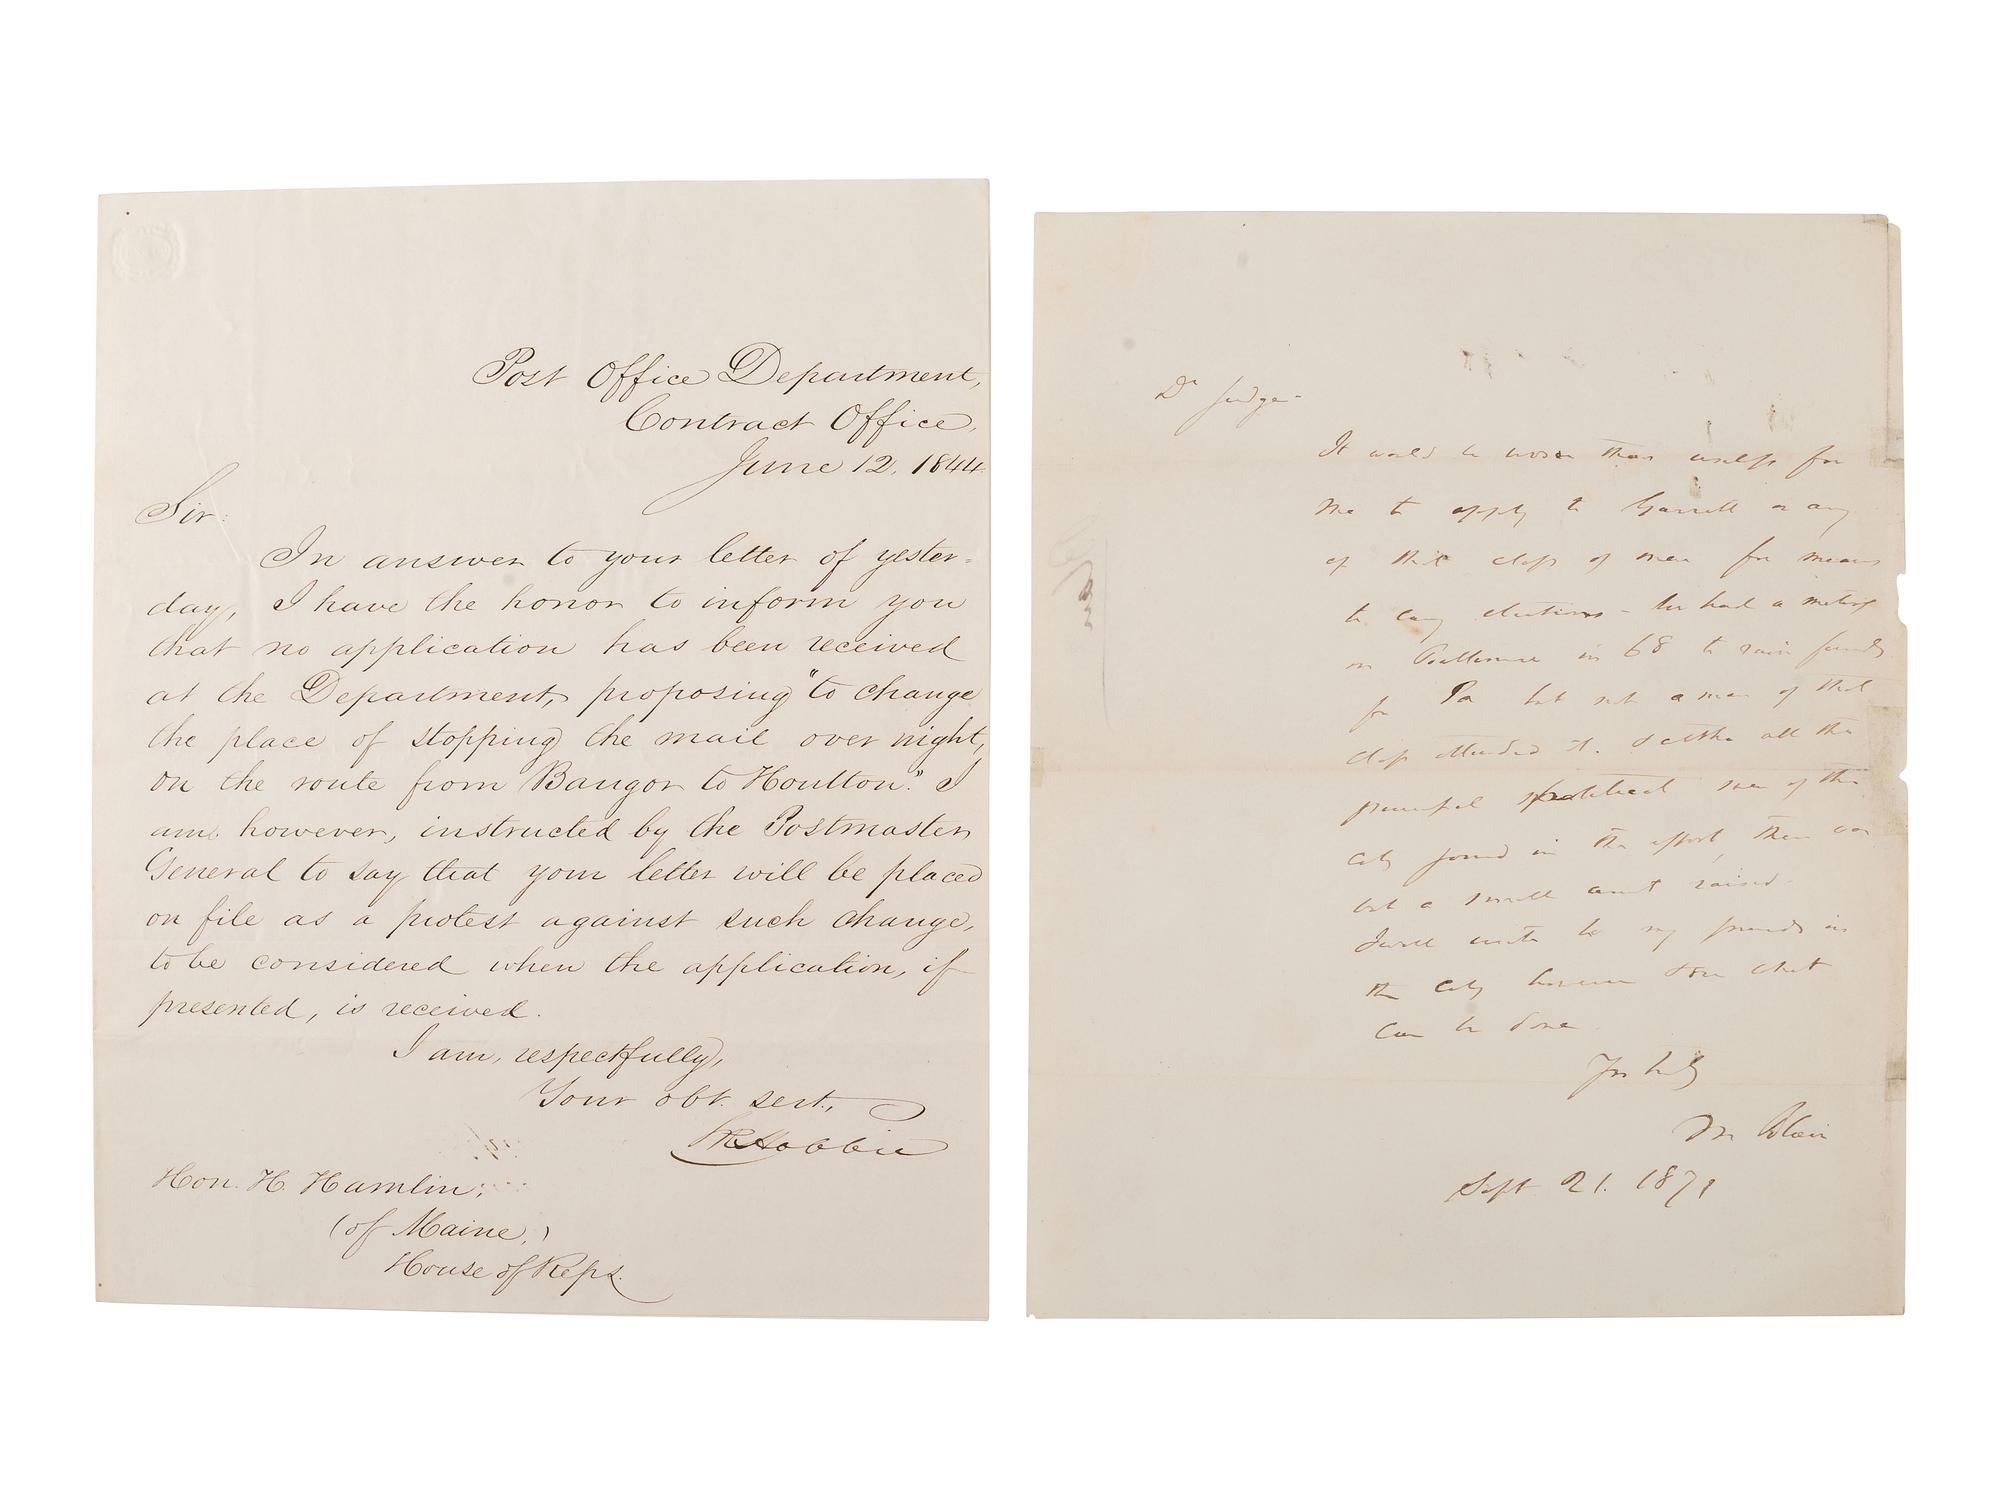 Post Office Department,
Contract Office,
June 12, 1844.
Sir:
In answer to your letter of yester-
day, I have the honor to inform you
that no application has been received
at the Department, proposing "to change
the place of stopping the mail over night,
on the route from Bangor to Houlton." I
am, however, instructed by the Postmaster
General to say that your letter will be placed
on file as a protest against such change,
to be considered when the application, if
presented, is received.
I am, respectfully,
Your obt. sert.,
S R Hobbie
Hon. H. Hamlin,
(of Maine,)
House of Reps.
Dr Judge-
It would be worse than useless for
me to apply to Garrett or any
of that class of men for means
to carry elections - We had a meeting
in Baltimore in 68 to raise funds
for Pa but not a man of that
class attended it. & altho all the
powerful political men of the
City joined in the effort, there was
but a small amt raised.
I will write to my friends in
the City however & see what
can be done.
Yrs truly
M Blair
Sept 21. 1871